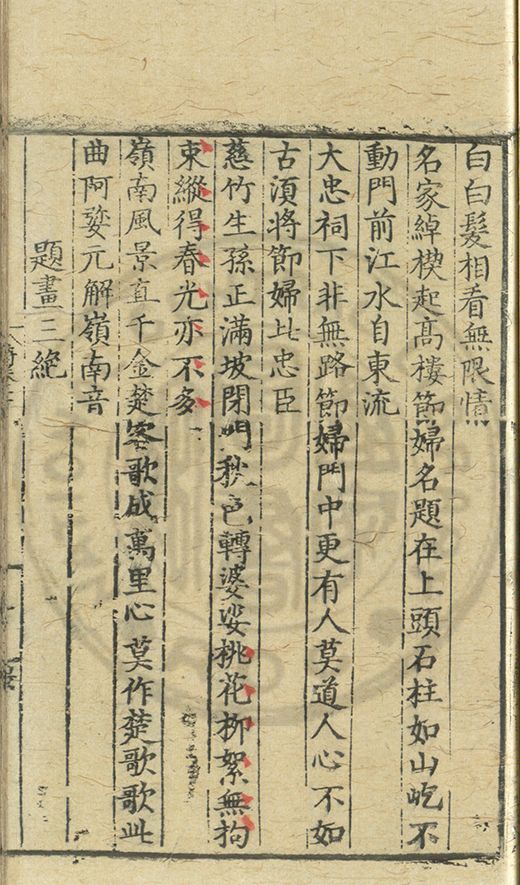 白白髮相看無限情
名家綽楔起高樓節婦名題在上頭石柱如山屹不
動門前江水自東流
大忠祠下非無路節婦門中更有人莫道人心不如
古須將節婦比忠臣
慈竹生孫正滿坡閉門秋色轉婆娑桃花柳絮無拘
束縱得春光亦不多
嶺南風景直千金楚客歌成萬里心莫作楚歌歌此
曲阿婺元解嶺南音
題畫三絕